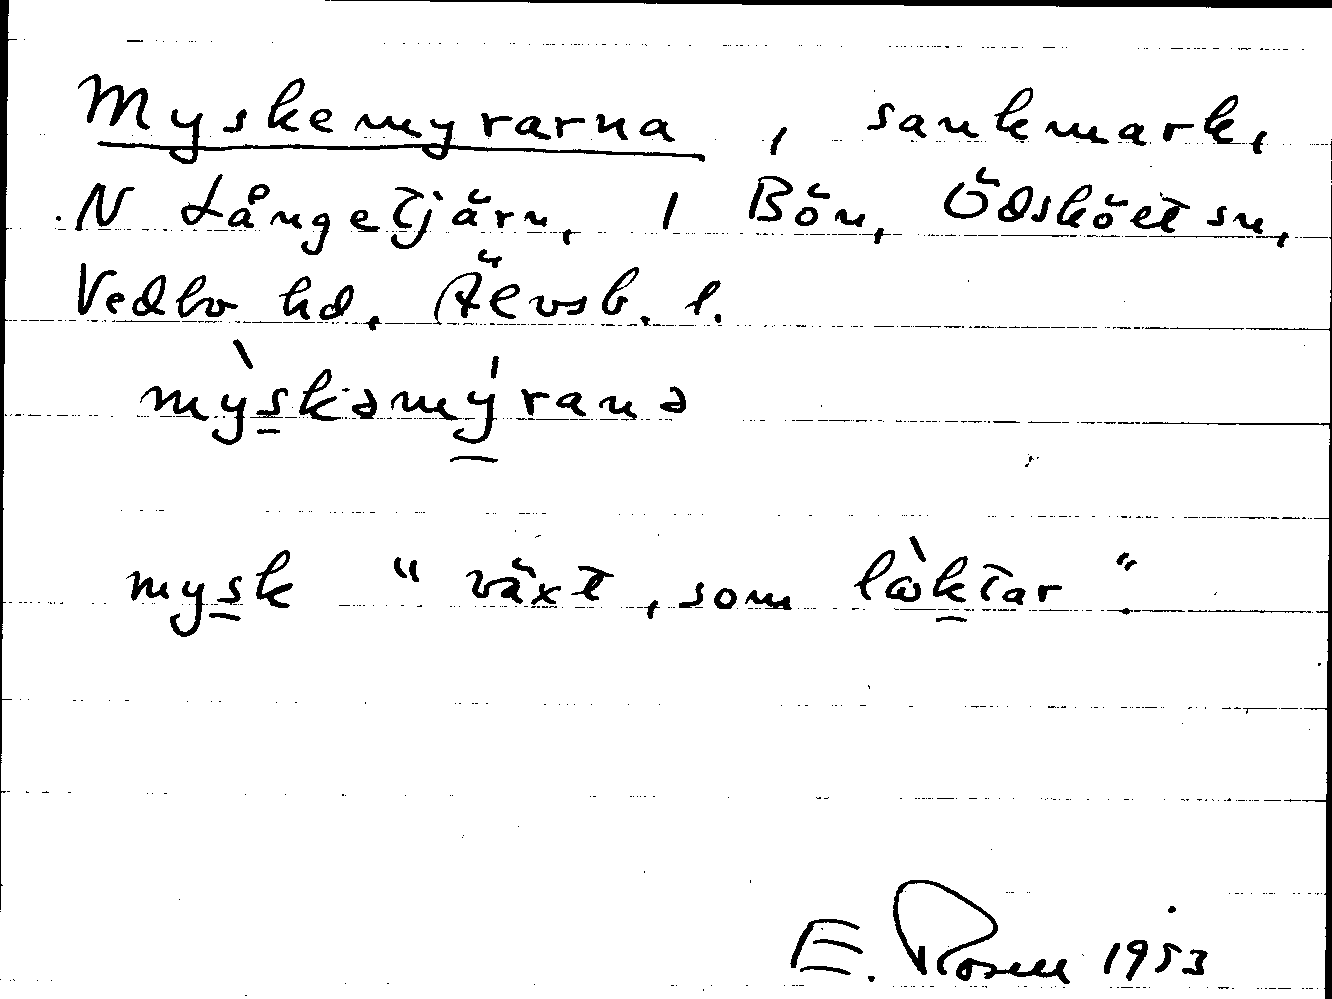 Myskemyrarna, sankmark,
N Långetjärn, i Bön, Ödskölt sn,
Vedbo hd. Älvsb. l.
mỳskəmýranə
mysk "växt, som lὼktar".
E. Rosell 1953